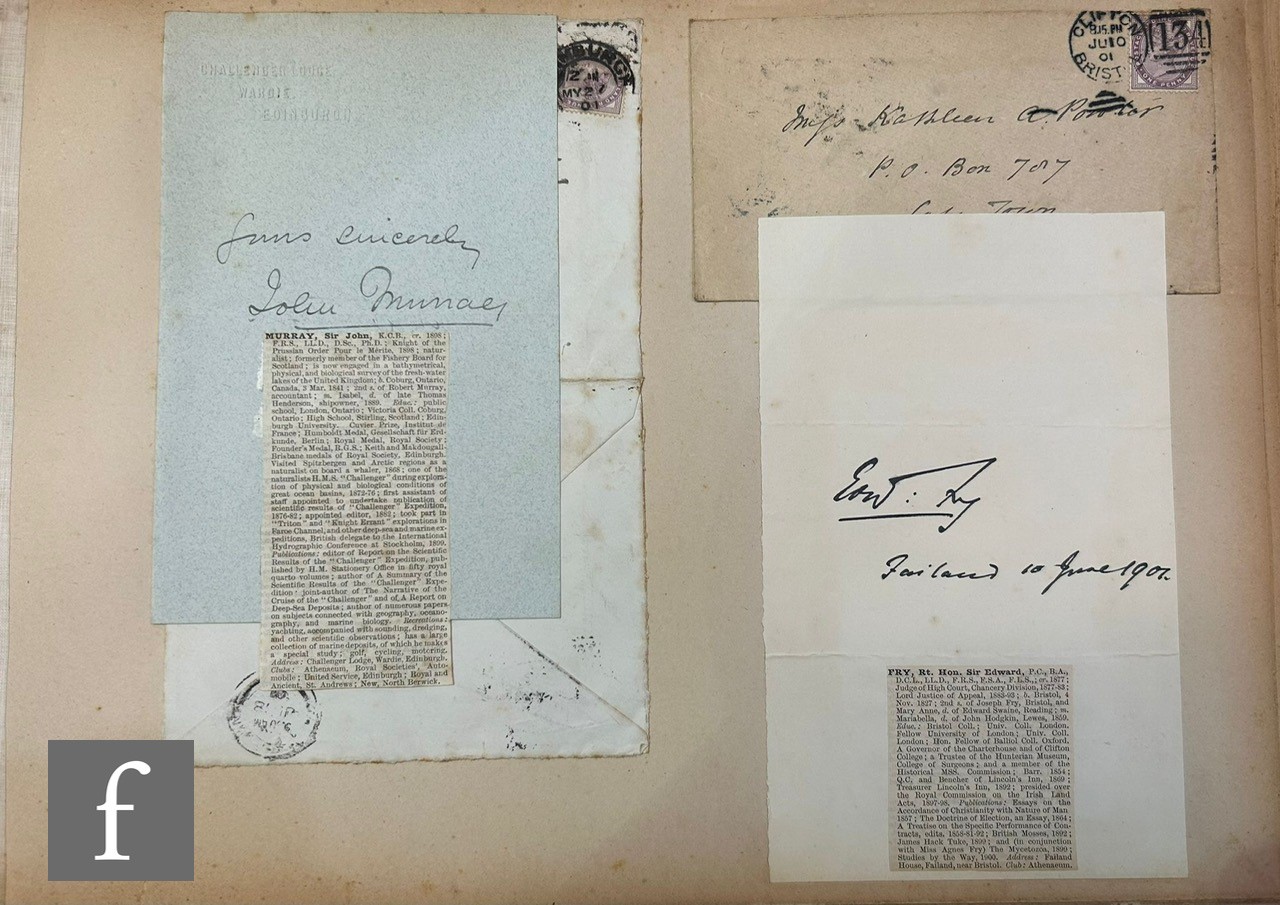 CHALLENGER LODGE,
WARDIE,
EDINBURGH
Yours sincerely
John Murray
MURRAY, Sir John, K.C.B., cr. 1898;
F.R.S., LL.D., D.Sc., Ph.D.; Knight of the
Prussian Order Pour le Mérite, 1898; natur-
alist; formerly member of the Fishery Board for
Scotland; is now engaged in a bathymetrical,
physical, and biological survey of the fresh-water
lakes of the United Kingdom; b. Coburg, Ontario,
Canada, 3 Mar. 1841; 2nd s. of Robert Murray,
accountant; m. Isabel, d. of late Thomas
Henderson, shipowner, 1889. Educ.: public
school, London, Ontario; Victoria Coll. Coburg,
Ontario; High School, Stirling, Scotland; Edin-
burgh University. Cuvier Prize, Institut de
France; Humboldt Medal, Gesellschaft für Erd-
kunde, Berlin; Royal Medal, Royal Society;
Founder's Medal, R.G.S.; Keith and Makdougall-
Brisbane medals of Royal Society, Edinburgh.
Visited Spitzbergen and Arctic regions as a
naturalist on board a whaler, 1868; one of the
naturalists H.M.S. "Challenger" during explora-
tion of physical and biological conditions of
great ocean basins, 1872-76; first assistant of
staff appointed to undertake publication of
scientific results of "Challenger" Expedition,
1876-82; appointed editor, 1882; took part in
"Triton" and "Knight Errant" explorations in
Faroe Channel, and other deep-sea and marine ex-
peditions, British delegate to the International
Hydrographic Conference at Stockholm, 1899.
Publications: editor of Report on the Scientific
Results of the "Challenger" Expedition, pub-
lished by H.M. Stationery Office in fifty royal
quarto volumes; author of A Summary of the
Scientific Results of the "Challenger" Expe-
dition; joint-author of The Narrative of the
Cruise of the "Challenger" and of A Report on
Deep-Sea Deposits; author of numerous papers
on subjects connected with geography, oceano-
graphy, and marine biology. Recreations:
yachting, accompanied with sounding, dredging,
and other scientific observations; has a large
collection of marine deposits, of which he makes
a special study; golf, cycling, motoring.
Address: Challenger Lodge, Wardie, Edinburgh.
Clubs: Athenaeum, Royal Societies', Auto-
mobile; United Service, Edinburgh; Royal and
Ancient, St. Andrews; New, North Berwick.
MY 27
01
CLIFTON
8.15.PM
JU 10
01
BRISTOL
134
ONE PENNY
Miss Kathleen A.
P.O. Box 707
Town
Edw: Fry
Failand 10 June 1901
FRY, Rt. Hon. Sir Edward, P.C., B.A.,
D.C.L., LL.D., F.R.S., F.S.A., F.L.S.; cr. 1877;
Judge of High Court, Chancery Division, 1877-83;
Lord Justice of Appeal, 1883-92; b. Bristol, 4
Nov. 1827; 2nd s. of Joseph Fry, Bristol, and
Mary Anne, d. of Edward Swaine, Reading; m.
Mariabella, d. of John Hodgkin, Lewes, 1859.
Educ.: Bristol Coll.; Univ. Coll. London.
Fellow University of London; Univ. Coll.
London; Hon. Fellow of Balliol Coll. Oxford.
A Governor of the Charterhouse and of Clifton
College; a Trustee of the Hunterian Museum,
College of Surgeons; and a member of the
Historical MSS. Commission; Barr. 1854;
Q.C. and Bencher of Lincoln's Inn, 1869;
Treasurer Lincoln's Inn, 1892; presided over
the Royal Commission on the Irish Land
Acts, 1897-98. Publications: Essays on the
Accordance of Christianity with Nature of Man
1857; The Doctrine of Election, an Essay, 1864;
A Treatise on the Specific Performance of Con-
tracts, edits. 1858-81-92; British Mosses, 1892;
James Hack Tuke, 1899; and (in conjunction
with Miss Agnes Fry) The Mycetozoa, 1899;
Studies by the Way, 1900. Address: Failand
House, Failand, near Bristol. Club: Athenaeum.
f